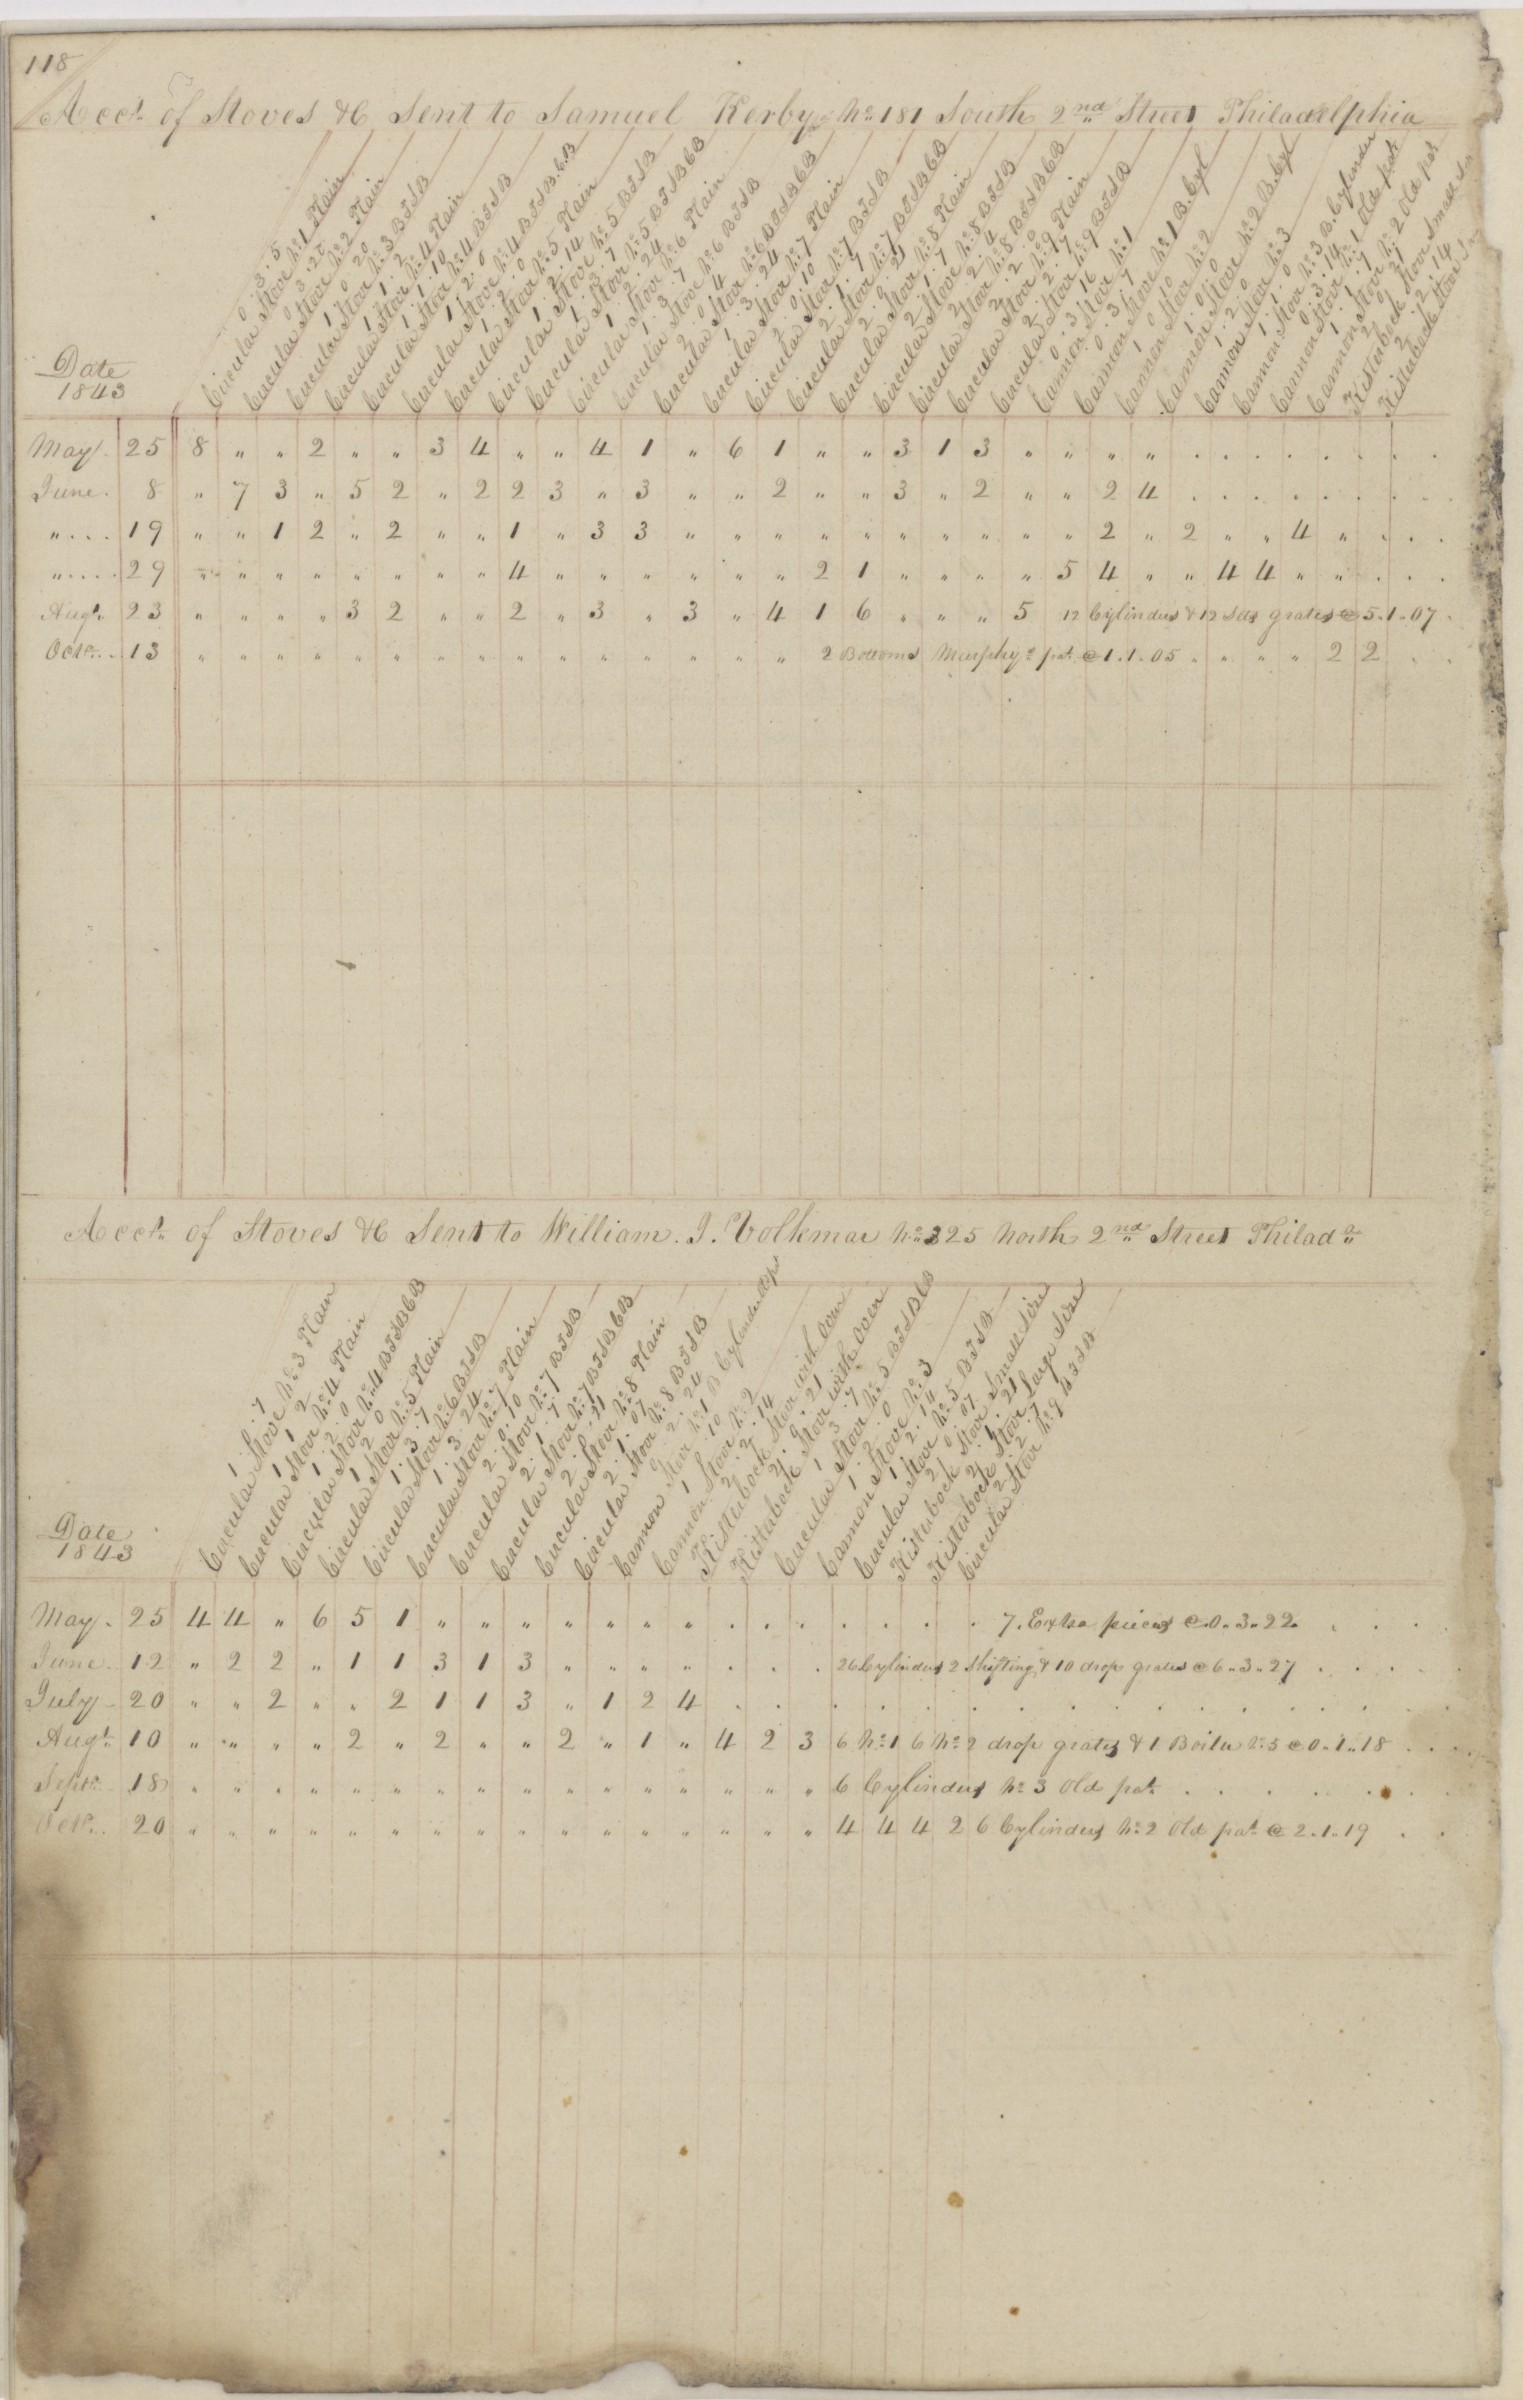 118
Acct. of Stoves &C Sent to Samuel Kerby No 181 South 2nd Street Philadelphia
0.3.5 Circular Stove No 1 Plain
0.3.22 Circular Stove No 2 Plain
Circular Stove No 3 B T S B
Circular Stove No 4 Plain
Circular Stove No 4 B T S B
Circular Stove No 4 B T S B 6 B
Circular Stove No 5 Plain
Circular Stove No 5 B T S B
Circular Stove No 5 B T S B 6 B
Circular Stove No 6 Plain
Circular Stove No 6 B T S B
Circular Stove No 6 B T S B 6 B
Circular Stove No 7 Plain
Circular Stove No 7 B T S B
Circular Stove No 7 B T S B 6 B
Circular Stove No 8 Plain
Circular Stove No 8 B T S B
Circular Stove No 8 B T S B 6 B
Circular Stove No 9 Plain
Circular Stove No 9 B T S B
Cannon Stove No 1
Cannon Stove No 1 B. Cyl
Cannon Stove No 2
Cannon Stove No 2 B. Cyl
Cannon Stove No 3
Cannon Stove No 3 B. Cylinder
Cannon Stove No 1 Old pat
Cannon Stove No 2 Old pat
Histerbock Stove Small
Histerbock Stove
Date
1843
May. 25 8 " " 2 " " 3 4 " " 4 1 " 6 1 " " 3 1 3 " " " " . . . . . . .
June. 8 " 7 3 " 5 2 " 2 2 3 " 3 " " 2 " " 3 " 2 " " 2 4 . . . . . . .
" . . . 19 " " 1 2 " 2 " " 1 " 3 3 " " " " " " " " " " 2 " 2 " " 4 " . . .
" . . . . 29 " " " " " " " " 4 " " " " " " 2 1 " " " " 5 4 " " 4 4 " " . . .
Augt. 23 " " " " 3 2 " " 2 " 3 " 3 " 4 1 6 " " " 5 12 Cylinders & 12 Sets grates @ 5.1.07 .
Octr. . 13 " " " " " " " " " " " " " " " 2 Bottoms Murphys pat. @ 1.1.05 " " " " 2 2 . .
Acct. of Stoves &C Sent to William. J. Volkmar No 325 North 2nd Street Philada
1.1.7 Circular Stove No 3 Plain
Circular Stove No 4 Plain
Circular Stove No 4 B T S B 6 B
Circular Stove No 5 Plain
1.3.7 Circular Stove No 6 B T S B
1.3.24 Circular Stove No 7 Plain
2.0.10 Circular Stove No 7 B T S B
2.1.7 Circular Stove No 7 B T S B 6 B
Circular Stove No 8 Plain
2.1.07 Circular Stove No 8 B T S B
Cannon Stove No 1 B Cylinder
Cannon Stove No 2
Histerbock Stove with Oven
Histerbock Stove with Oven
1.3.7 Circular Stove No 5 B T S B 6 B
Cannon Stove No 3
Circular Stove No 5 B T S B
Histerbock Stove Small Size
Histerbock Stove Large Size
Circular Stove No 9 B T S B
Date
1843
May. 25 4 4 " 6 5 1 " " " " " " " . . . . . . . 7. Extra pieces @ 0.3.22 . . .
June. 12 " 2 2 " 1 1 3 1 3 " " " " . . . 26 Cylinders 2 Shifting & 10 drop grates @ 6.3.27 . . . .
July 20 " " 2 " " 2 1 1 3 " 1 2 4 . . . . . . . . . . . . . . . . . .
Augt. 10 " " " " 2 " 2 " " 2 " 1 " 4 2 3 6 No 1 6 No 2 drop grates & 1 Boiler No 5 @ 0.1.18 . . .
Septr. 18 " " " " " " " " " " " " " " " " 6 Cylinders No 3 Old pat. . . . . . .
Octr. . 20 " " " " " " " " " " " " " " " " 4 4 4 2 6 Cylinders No 2 Old pat. @ 2.1.19 . .